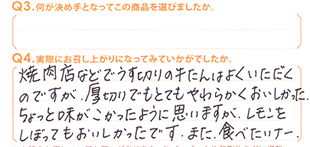 Q3.何が決め手となってこの商品を選びましたか。
Q4.実際にお召し上がりになってみていかがでしたか。
焼肉店などでうす切りの牛たんはよくいただく
のですが、厚切りでもとてもやわらかくおいしかった。
ちょっと味がこかったように思いますが、レモンを
しぼってもおいしかったです。また、食べたいナー。